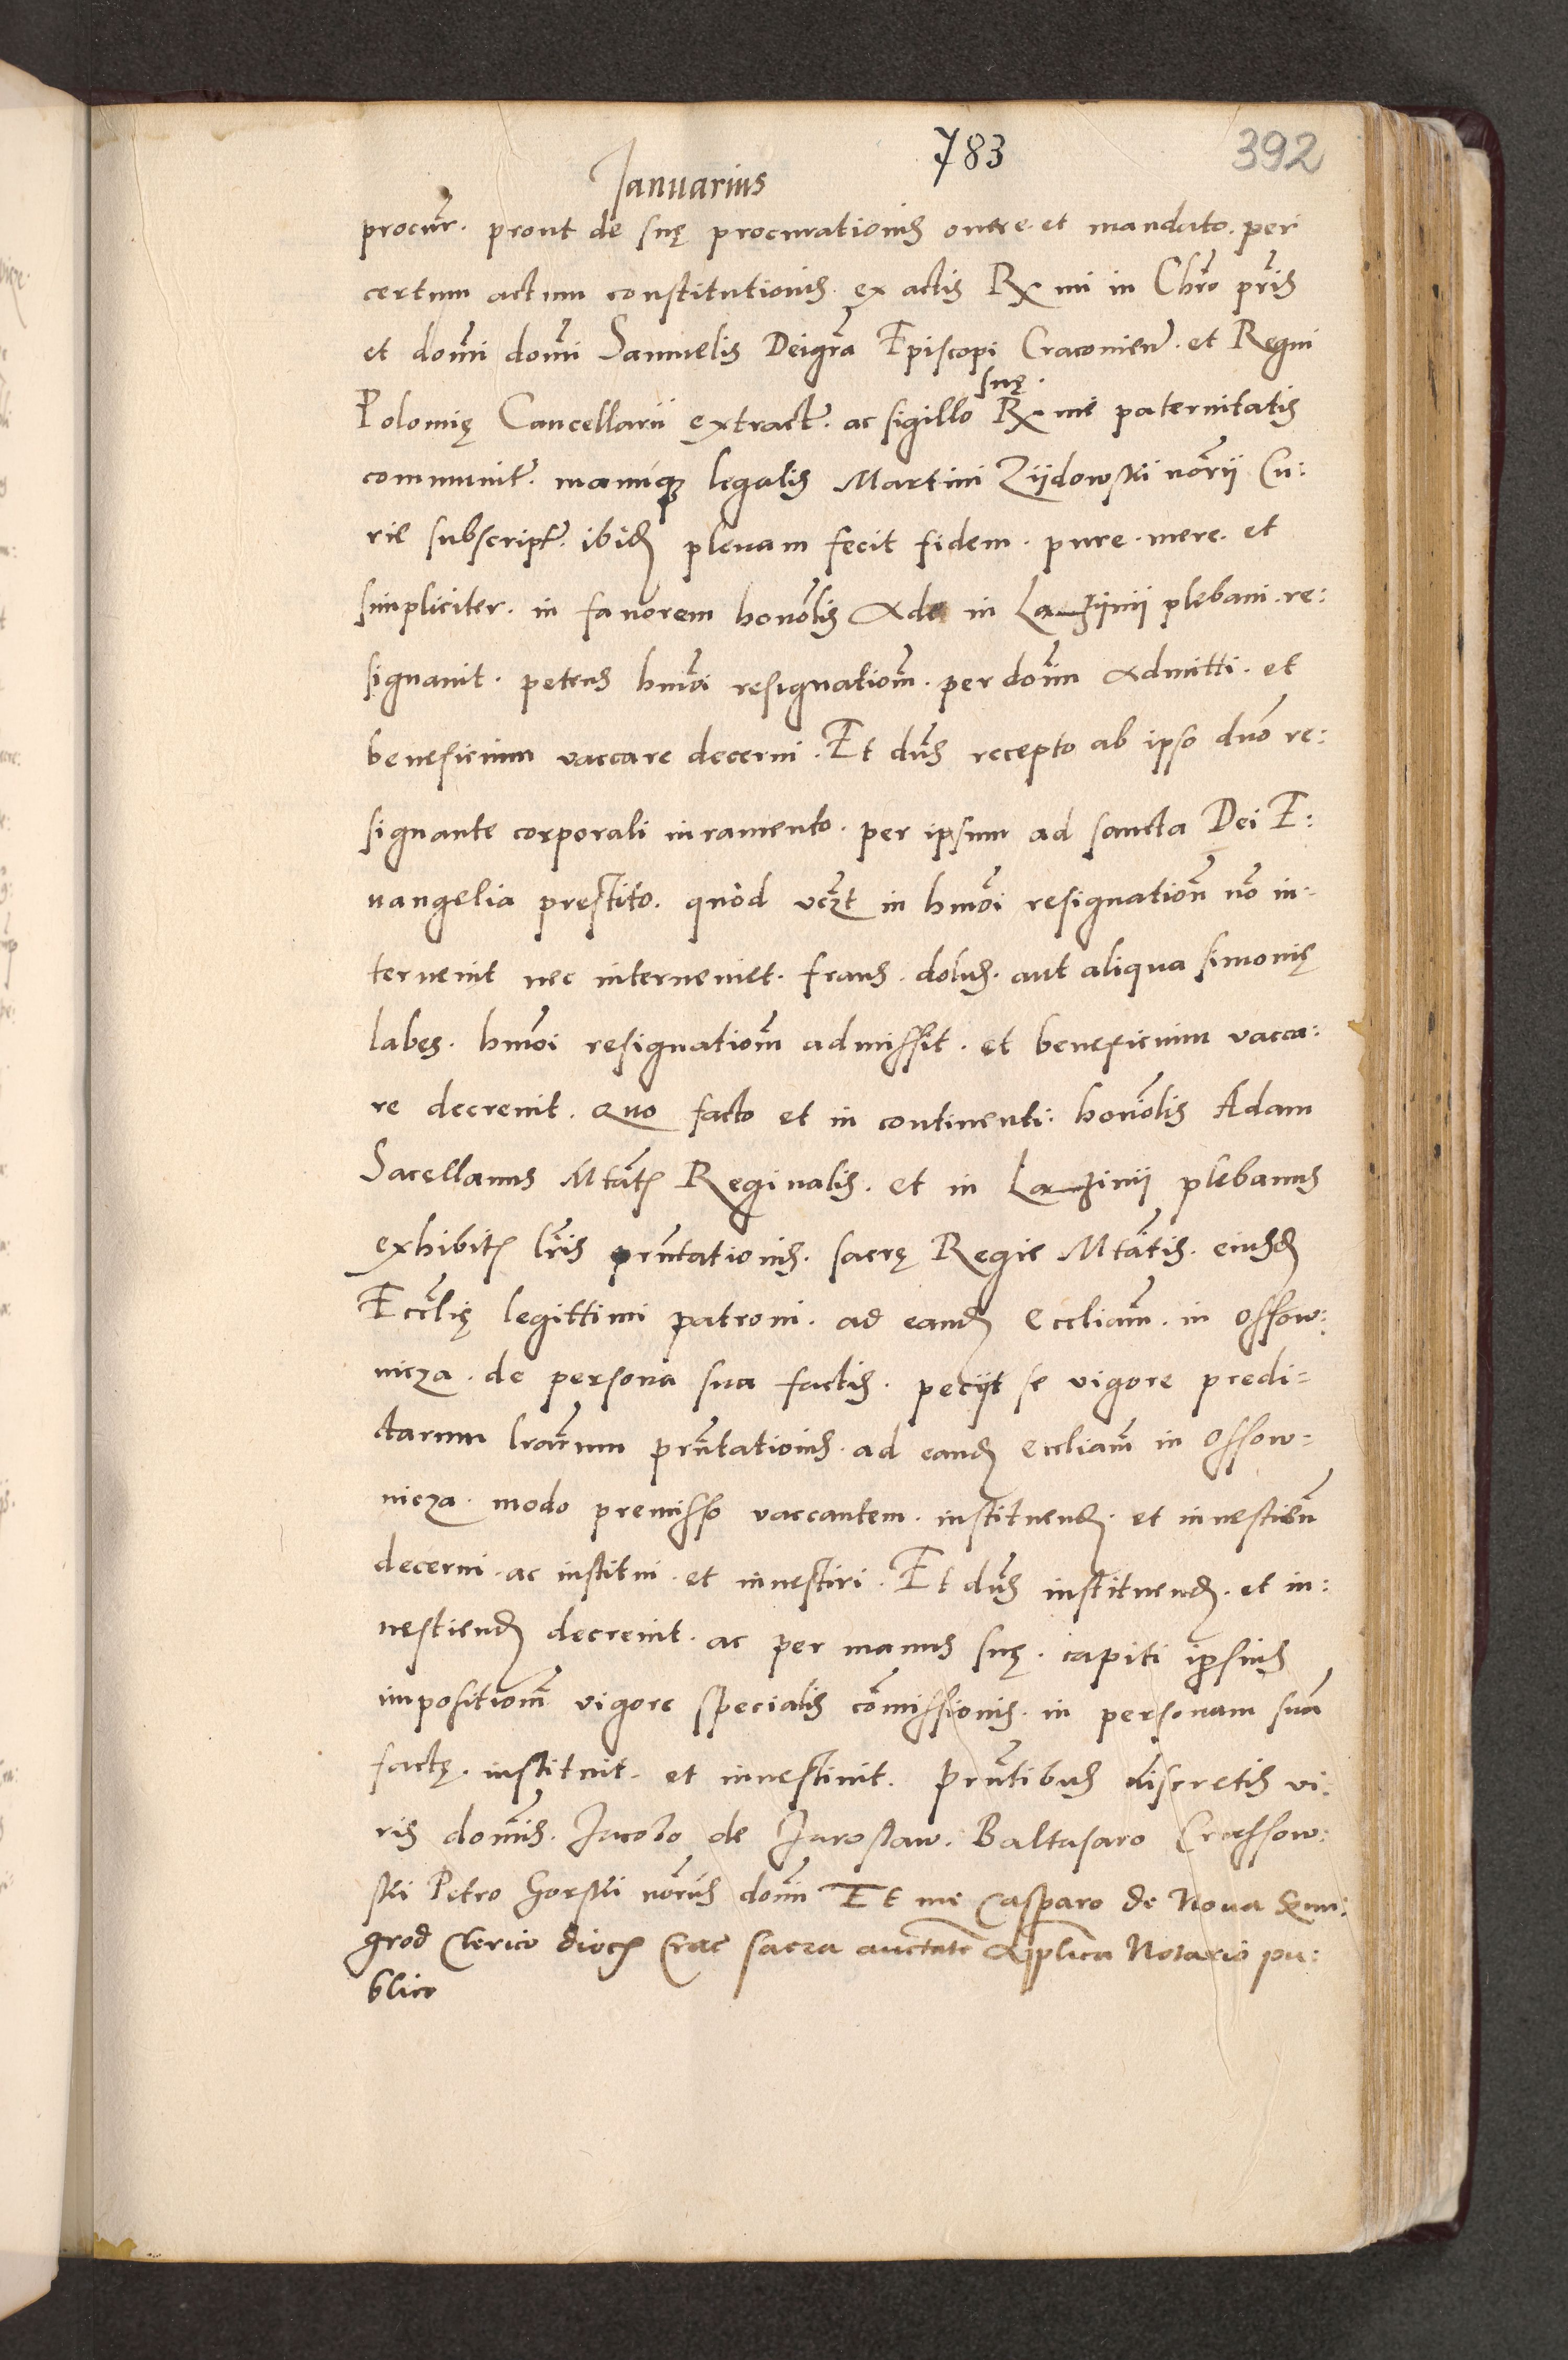 783
392
Januarius
procur. prout de suę procurationis onere et mandato. per
certum actum constitutionis. ex actis Rx mi in Chro pris
et domi domi Samuelis Dei gra Episcopi Cracovien. et Regni
suę.
Polonię Cancellarii extract. ac sigillo Rx me paternitatis
communit. manuque legalis Martini Ziidowski norii Cu:
rie subscript. ibid plenam fecit fidem. pure. mere. et
simpliciter. in favorem honolis Ade in plebani. re:
signavit. petens hmoi resignatiom. per domi admitti. et
beneficium vaccare decerni. Et dns recepto ab ipso dno re:
signante corporali iuramento. per ipsum ad sancta Dei E:
vangelia prestito. quod vczt in hmoi resignation no in:
tervenit nec interveniet. fraus. dolus. aut aliqua simonię
labes. hmoi resignatiom admissit. et beneficium vacca:
re decrevit. Quo facto et in continenti: honolis Adam
Sacellanus Mtatis Reginalis. et in plebanus
exhibitis lris prntationis. sacrę Regie Mtatis. eiusd
Ecclię legittimi patroni. ad eand eccliam. in Ossow:
nicza. de persona sua factis. peciit se vigore predi=
ctarum lrarum prntationis. ad eand eccliam in Ossow=
nicza. modo premisso vaccantem. instituend. et investien
decerni. ac institui. et investiri. Et dns instituend. et in:
vestiend decrevit. ac per manus suę. capiti ipsius
impositiom vigore specialis comissionis. in personam sua
factę. instituit. et investivit. Prntibus discretis vi:
ris domis. Jacobo de Jaroslaw. Baltasaro Crassow:
ski Petro Gorski noriis domi Et me Casparo de Nova
grod Clerico dioc Crac sacra auctate aplica Notario pu:
blico